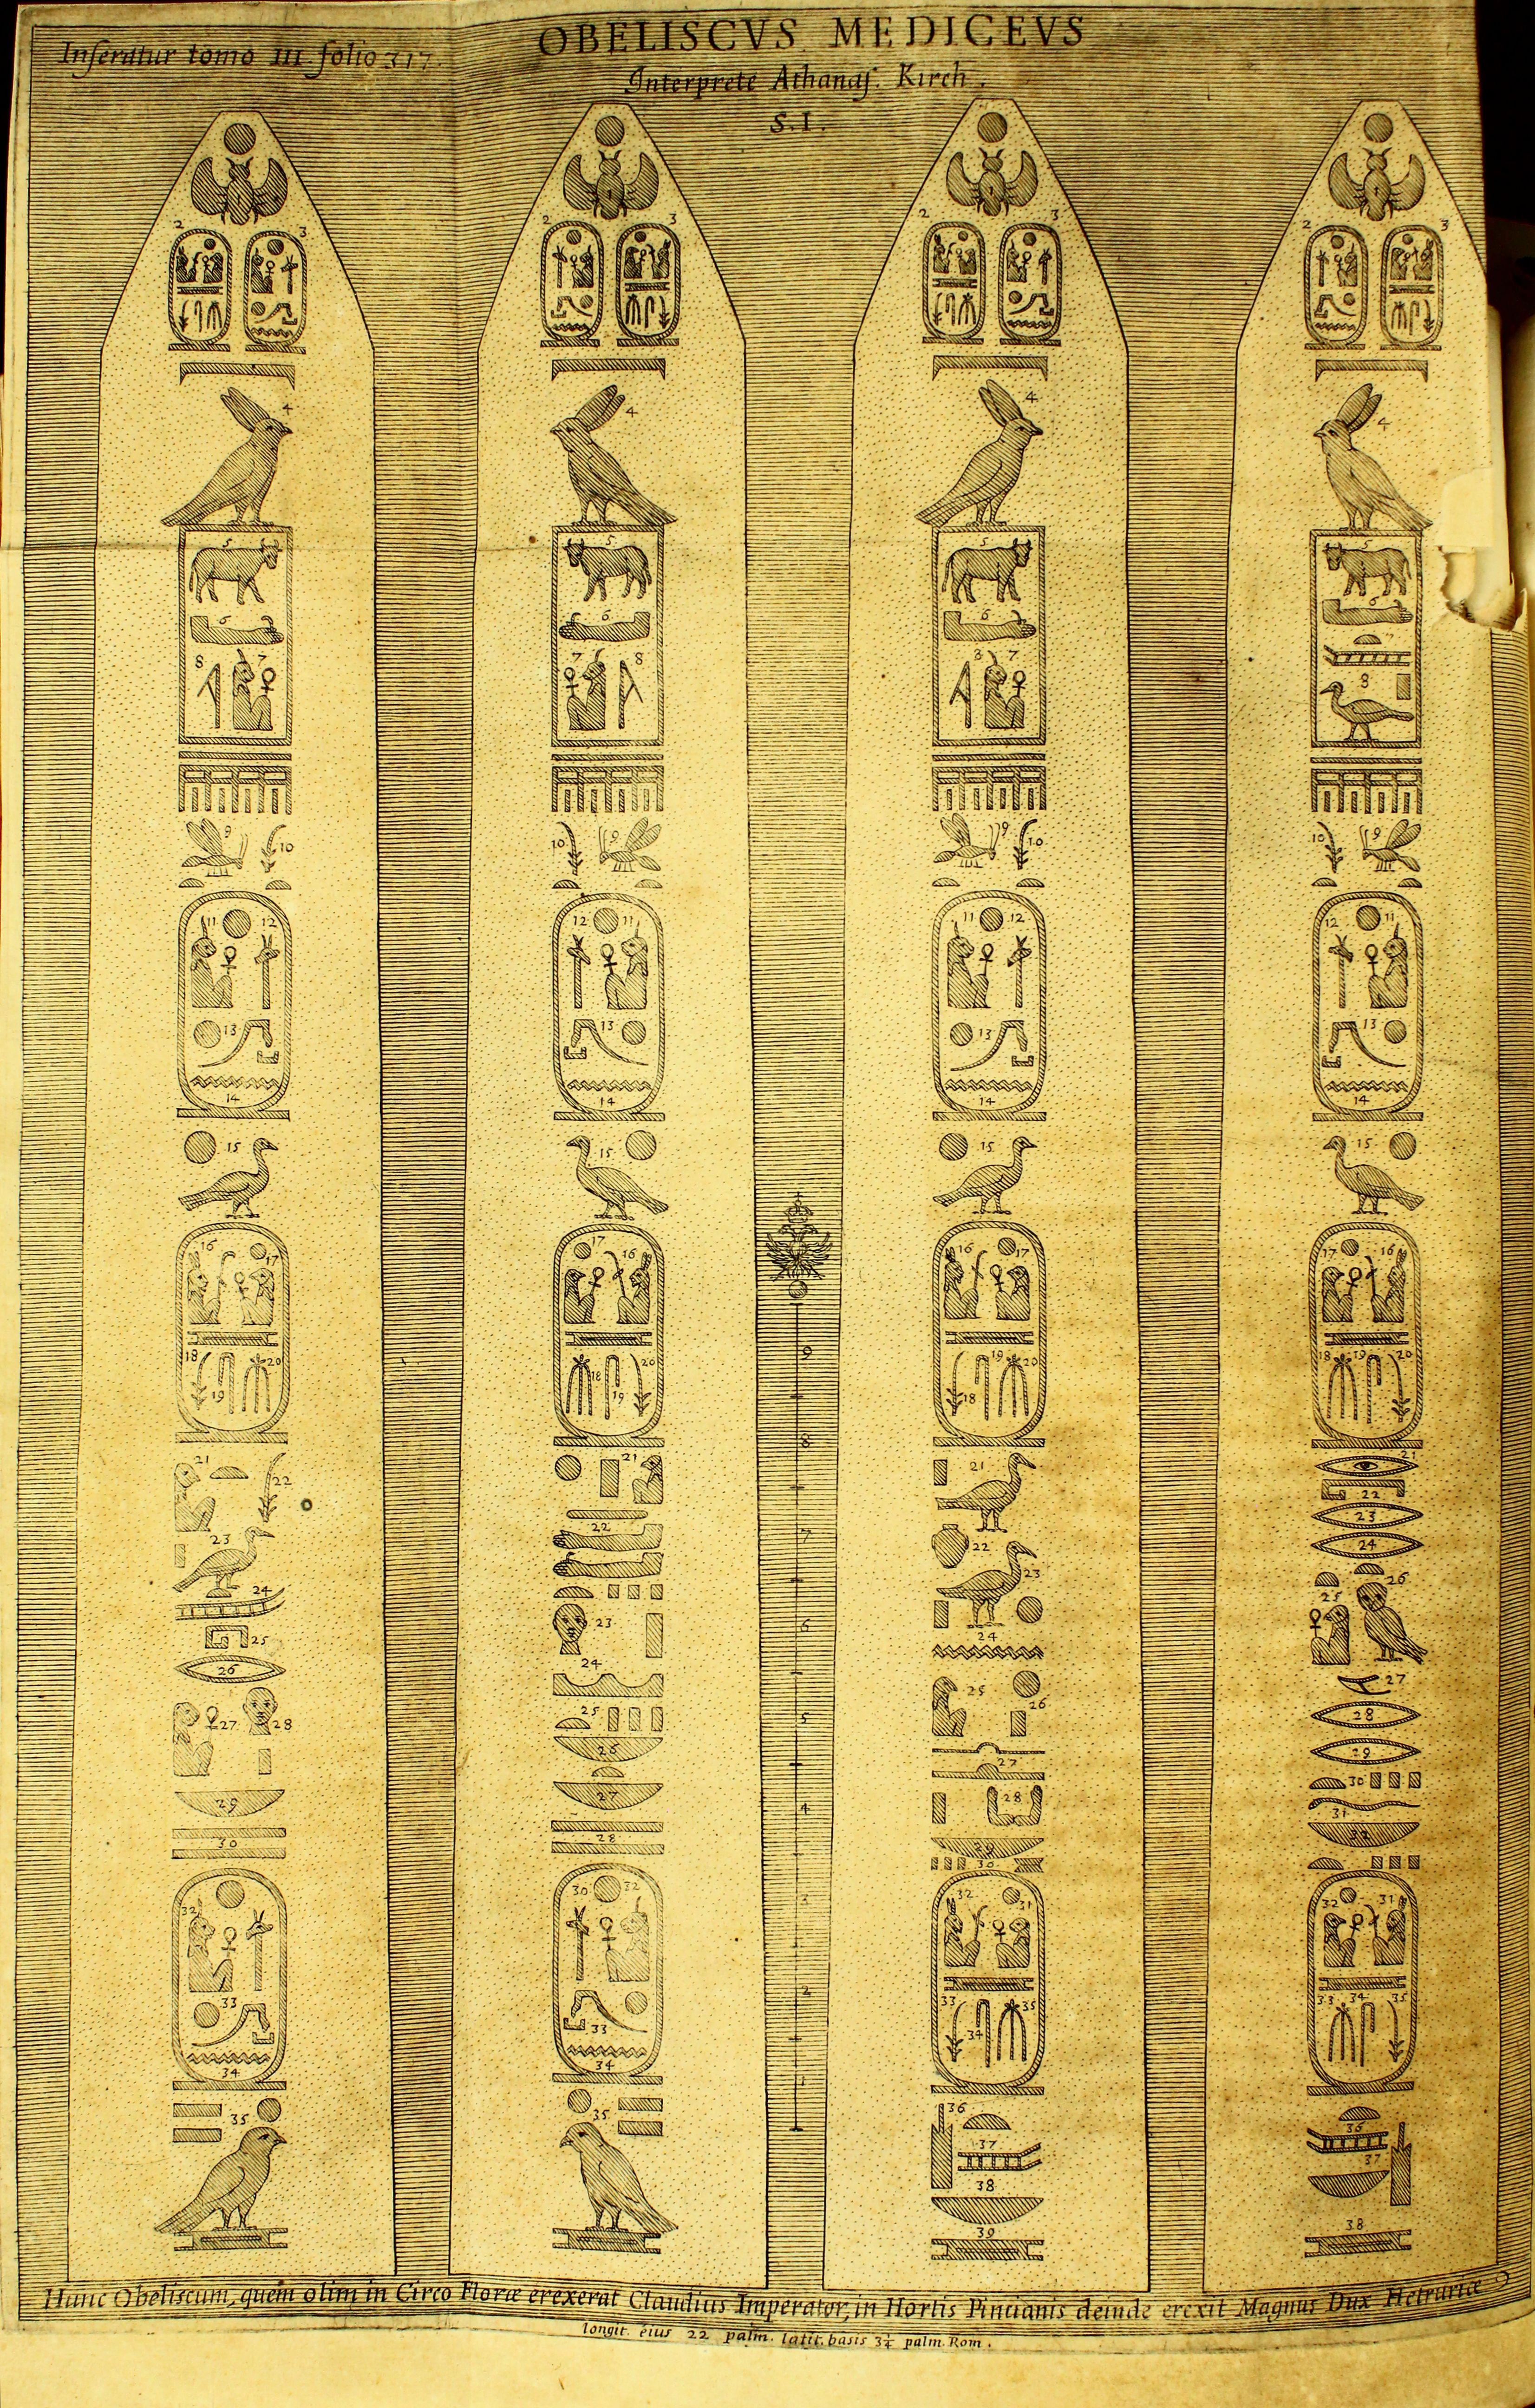 OBELISCVS MEDICEVS
Inseratur tomo III folio 317.
Interprete Athanas. Kirch.
S.I.
2 3 2 3 2 3 2 3
4 4 4 4
5 5 5 5
6 6 6 6
8 7 7 8 8 7 7
8
9 10 10 9 9 10 10 9
11 12 12 11 11 12 12 11
13 13 13 13
14 14 14 14
15 15 15 15
16 17 17 16 16 17 17 16
9
18 19 20 18 19 20 18 19 20 18 19 20
8
21 22 21 21 21
22 22
23 22 7 22 23
24 23 24
25 23 6 24 25 26
26 24 25 27
27 28 25 5 26 28
26 27 29
29 27 4 28 30
30 28 29 31
30 32
32 30 32 3 32 31 32 31
33 33 2 33 34 35 33 34 35
34 34 1
35 35 36 36
37 37
38
39 38
Hunc Obeliscum, quem olim in Circo Floræ erexerat Claudius Imperator, in Hortis Pincianis deinde erexit Magnus Dux Hetruriæ
longit. eius 22 palm. latit. basis 3¼ palm. Rom.